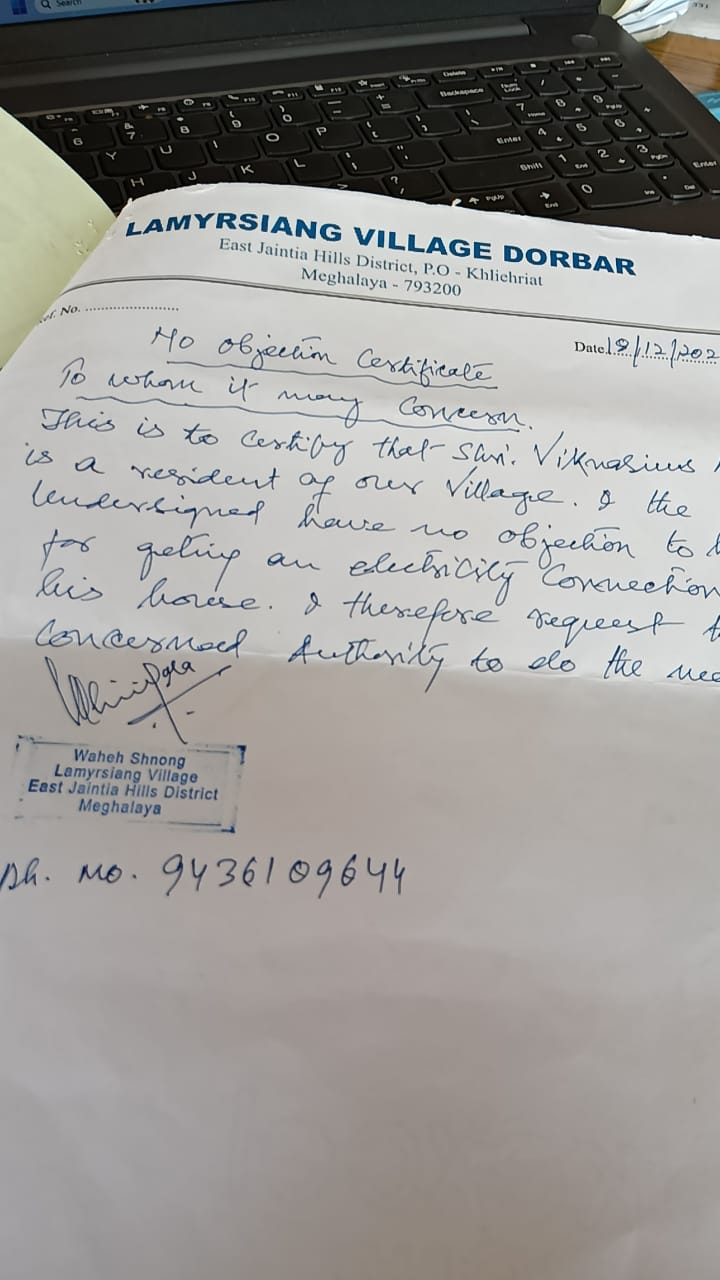 Search
LAMYRSIANG VILLAGE DORBAR
East Jaintia Hills District, P.O - Khliehriat
Meghalaya - 793200
No. ........................
Date.19/12/202
No Objection Certificate
To whom it may Concern.
This is to certify that Shri. Viknasius
is a resident of our Village. I the
Undersigned have no objection to
for geting an electricity Connection
his house. I therefore request
Concerned Authority to do the nee
Waheh Shnong
Lamyrsiang Village
East Jaintia Hills District
Meghalaya
Ph. No. 9436109644